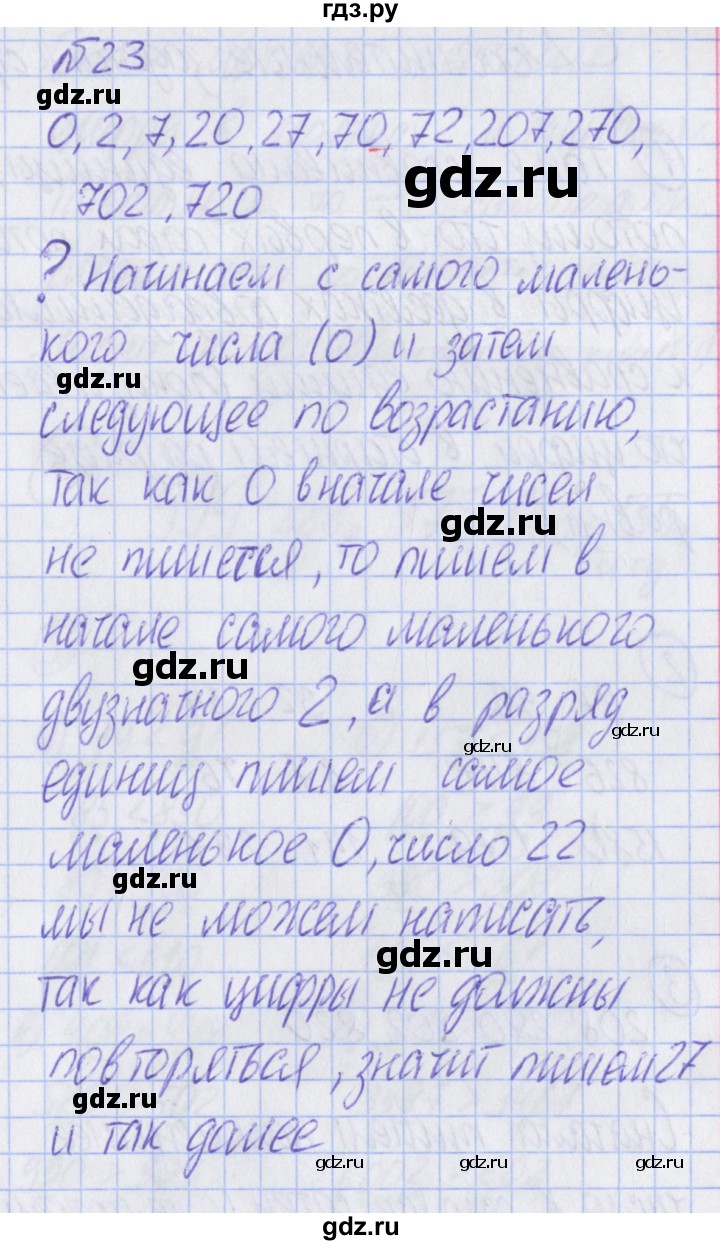 гдз.ру
№23
gdz.ru
0, 2, 7, 20, 27, 70, 72, 207, 270,
gdz.ru
702, 720
? Начинаем с самого малень-
кого числа (0) и затем
gdz.ru
следующее по возрастанию,
так как 0 вначале чисел
gdz.ru
не пишется, то пишем в
начале самого маленького
gdz.ru
двузначного 2, а в разряд
gdz.ru
gdz.ru
единиц пишем самое
маленькое 0, число 22
gdz.ru
мы не можем написать,
gdz.ru
так как цифры не должны
повторяться, значит пишем 27
gdz.ru
и так далее
gdz.ru gdz.ru gdz.ru
gdz.ru